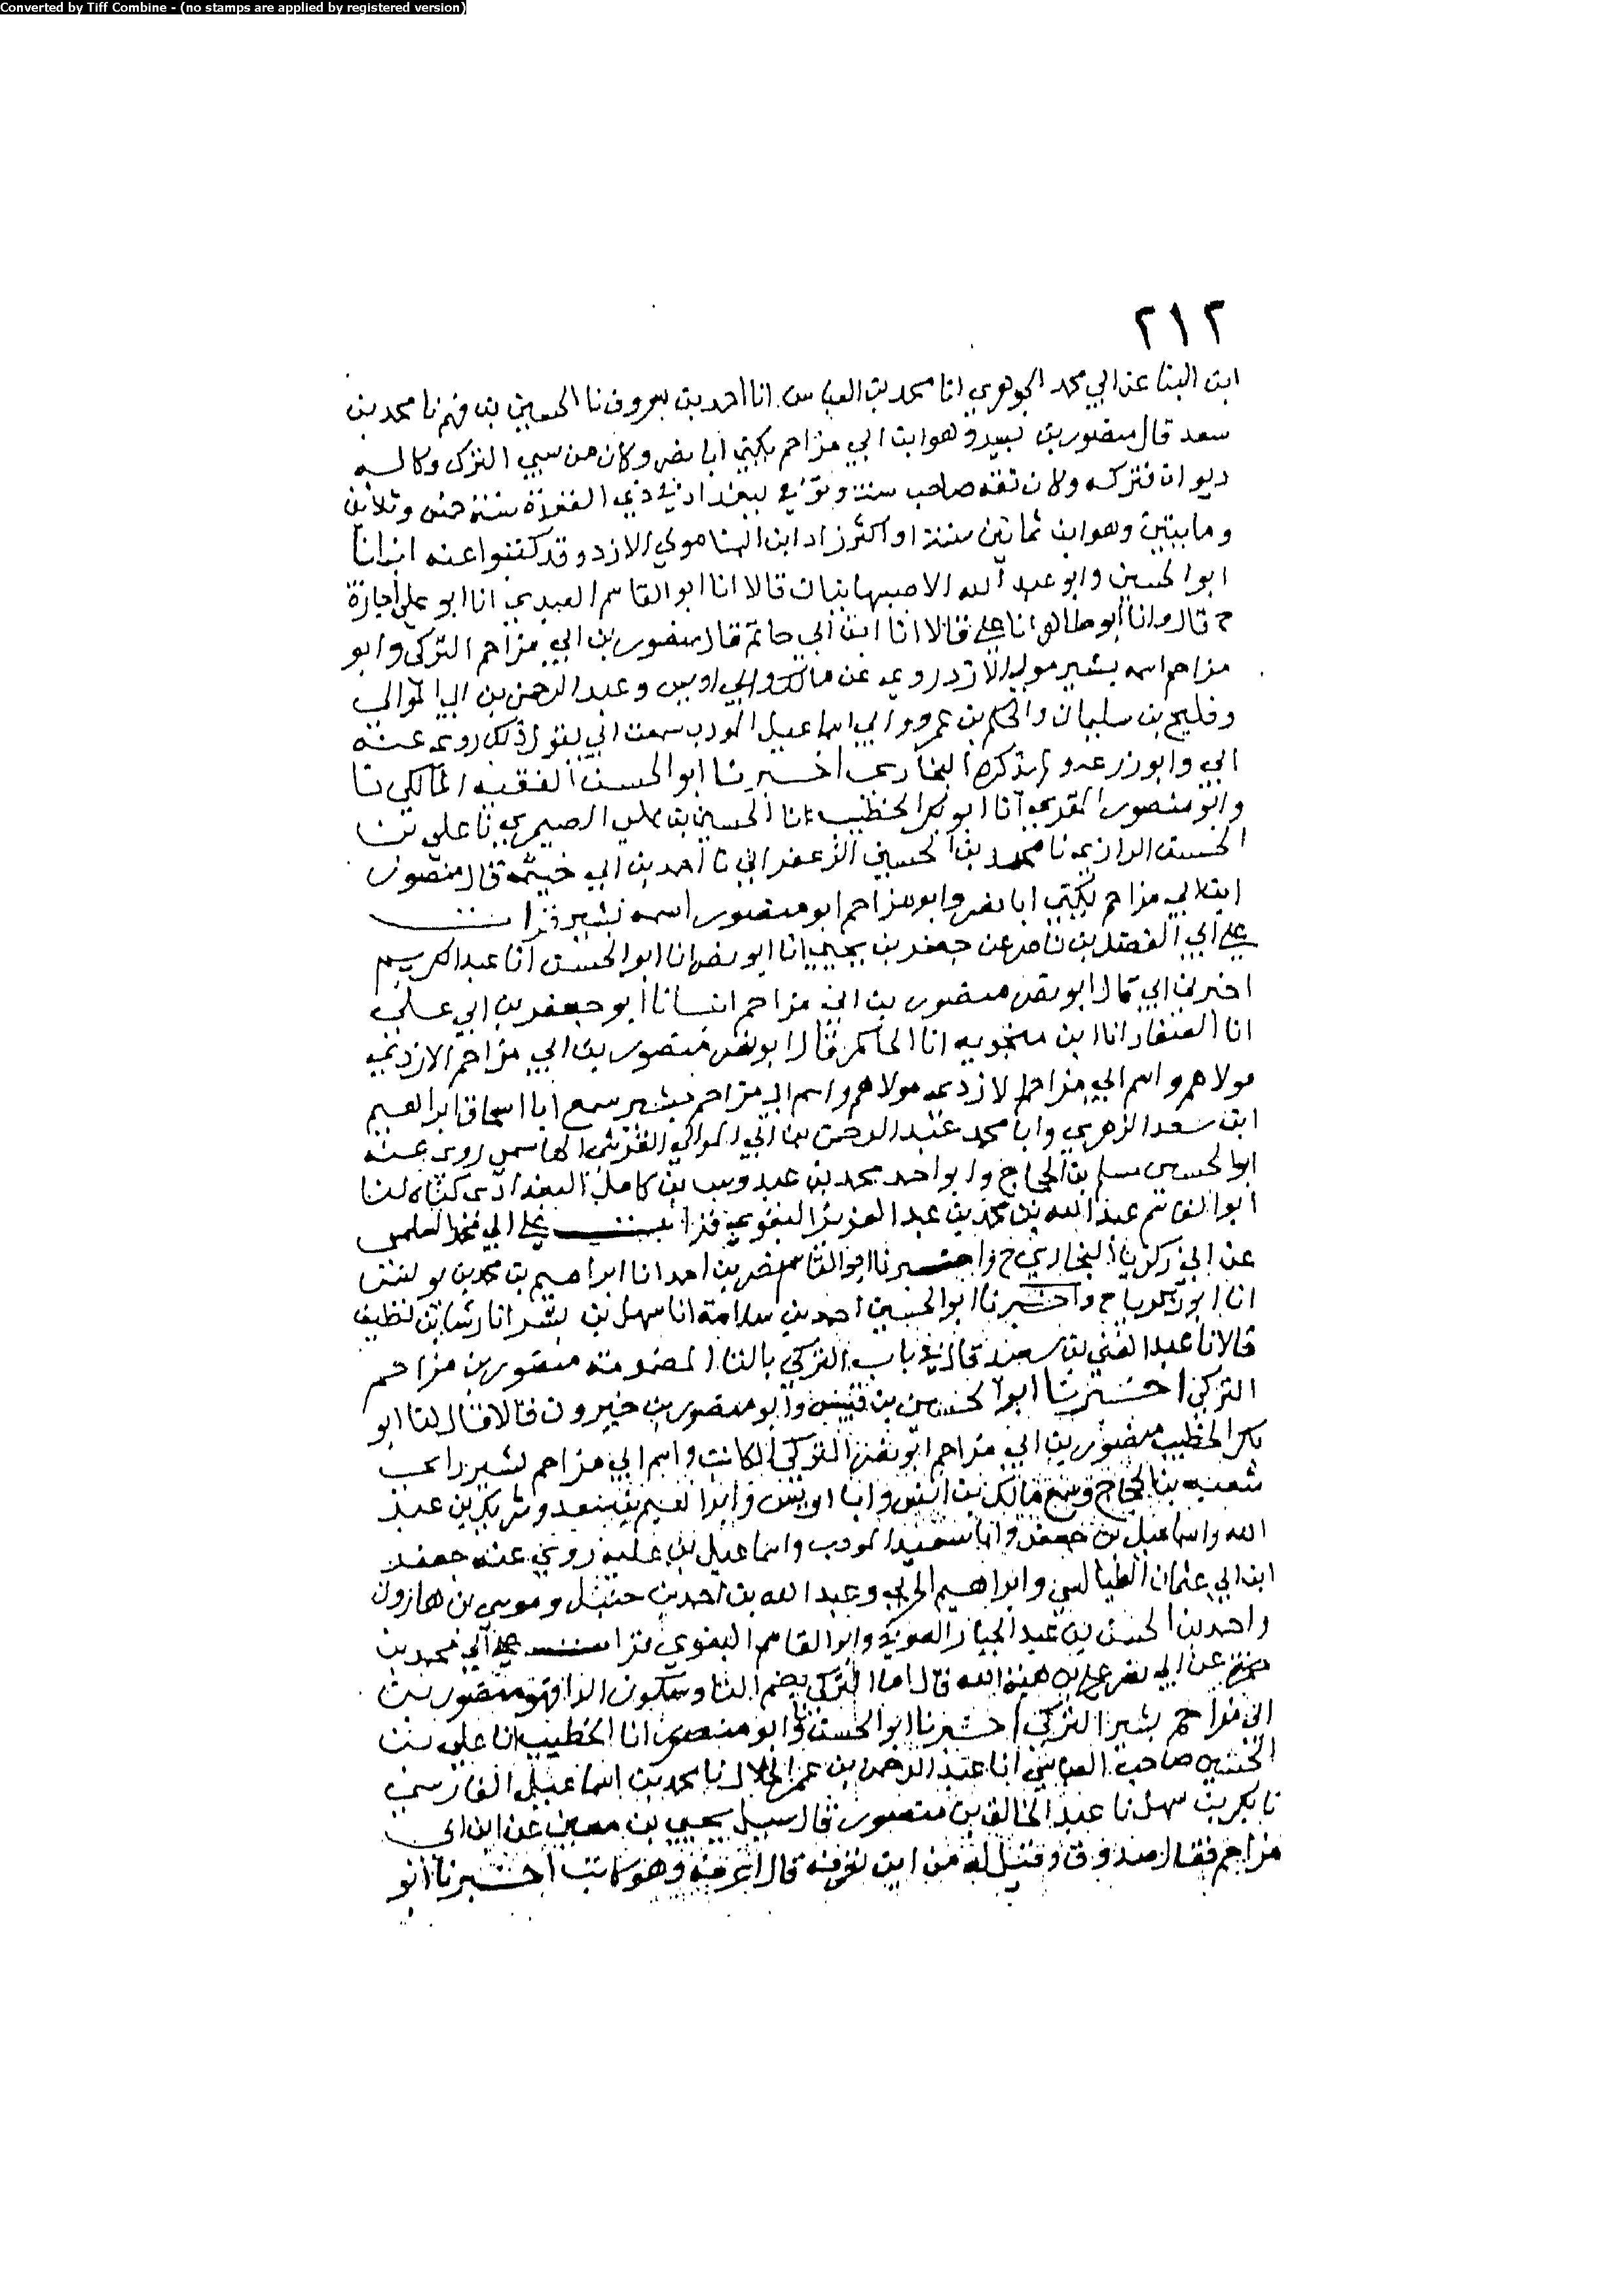 Converted by Tiff Combine - (no stamps are applied by registered version)
٢١٢
ابن البنا عن ابي محمد الجوهري انا محمد بن العباس انا احمد بن معروف نا الحسين بن فهم نا محمد بن
سعد قال منصور بن بشير وهو ابن ابي مزاحم يكنى ابا نصر وكان من سبي الترك وكا له
ديوان فتركه وكان ثقة صاحب سنة وتوفي ببغداد في ذي القعدة سنة خمس وثلاثين
ومايتين وهو ابن ثمانين سنة او اكثر زاد ابن البنا مولى الازد وقد كتبوا عنه انبانا
ابو الحسين وابو عبد الله الاصبهانيان قالا انا ابو القاسم العبدي انا ابو علي اجازة
ح قال وانا ابو طاهر انا علي قالا انا ابن ابي حاتم قال منصور بن ابي مزاحم التركي وابو
مزاحم اسمه بشير مولى الازد روى عن مالك وابي اويس وعبد الرحمن بن ابي الموالي
وفليح بن سليمان والحكم بن عمرو وابي اسماعيل المودب سمعت ابي يقول ذلك روى عنه
ابي وابو زرعة ولم يذكره البخاري اخبرنا ابو الحسن الفقيه المالكي نا
وابو منصور المقري انا ابو بكر الخطيب انا الحسين بن علي الصيمري نا علي بن
الحسن الرازي نا محمد بن الحسين الزعفراني نا احمد بن ابي خيثمة قال منصور
ابن ابي مزاحم يكنى ابا نصر وابو مزاحم ابو منصور اسمه بشير قرات
على ابي الفضل بن ناصر عن جعفر بن يحيى انا ابو نصر انا ابو الحسن انا عبد الكريم
اخبرني ابي قال ابو نصر منصور بن ابي مزاحم انبانا ابو جعفر بن ابي علي
انا الصفار انا ابن منجويه انا الحاكم قال ابو نصر منصور بن ابي مزاحم الازدي
مولاهم واسم ابي مزاحم الازدي مولاهم واسم ابي مزاحم بشير سمع ابا اسحاق ابراهيم
ابن سعد الزهري وابا محمد عبد الرحمن بن ابي الموالي القرشي الهاشمي روى عنه
ابو الحسين مسلم بن الحجاج وابو احمد محمد بن عبدوس بن كامل البغدادي كناه لنا
ابو القاسم عبد الله بن محمد بن عبد العزيز البغوي قرات على ابي محمد السلمي
عن ابي زكريا البخاري ح واخبرنا ابو القاسم نصر بن احمد انا ابراهيم بن محمد بن يونس
انا ابو زكريا ح واخبرنا ابو الحسين احمد بن سلامة انا سهل بن بشر انا رشا بن نظيف
قالا نا عبد الغني بن سعيد قال في باب التركي بالتا المضمومة منصور بن مزاحم
التركي اخبرنا ابو الحسن بن قبيس وابو منصور بن خيرون قالا قال لنا ابو
بكر الخطيب منصور بن ابي مزاحم ابو نصر التركي الكاتب واسم ابي مزاحم بشير راى
شعبة بن الحجاج وسمع مالك بن انس وابا اويس وابراهيم بن سعد وشريك بن عبد
الله واسماعيل بن جعفر وابا سعيد المودب واسماعيل بن علية روى عنه جعفر
ابن ابي عثمان الطيالسي وابراهيم الحربي وعبد الله بن احمد بن حنبل وموسى بن هارون
واحمد بن الحسن بن عبد الجبار الصوفي وابو القاسم البغوي قرات على ابي محمد بن
حمزة عن ابي نصر علي بن هبة الله قال اما التركي بضم التا وسكون الرا فهو منصور بن
ابي مزاحم بشير التركي اخبرنا ابو الحسن نا وابو منصور انا الخطيب انا علي بن
الحسين صاحب العباسي انا عبد الرحمن بن عمر الخلال نا محمد بن اسماعيل الفارسي
نا بكر بن سهل نا عبد الخالق بن منصور قال سيل يحيى بن معين عن ابن ابي
مزاحم فقال صدوق وقيل له من اين تعرفه قال اعرفه وهو كاتب اخبرنا ابو